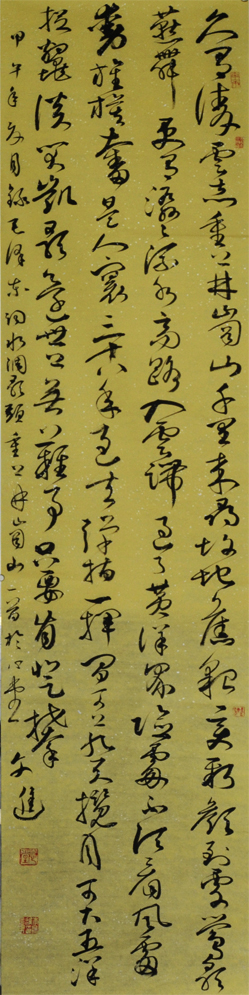 久有凌雲志重上井崗山千里来尋故地舊貌变新颜到處莺歌
燕舞更有潺潺流水高路入雲端過了黄洋界险處不須看風雷
動旌旗奮是人寰三十八年過去弹指一揮间可上九天攬月可下五洋
捉鳖谈笑凱歌還世上無難事只要肯登攀
甲午年夏月録毛泽东词水调歌頭重上井崗山一首於
文進